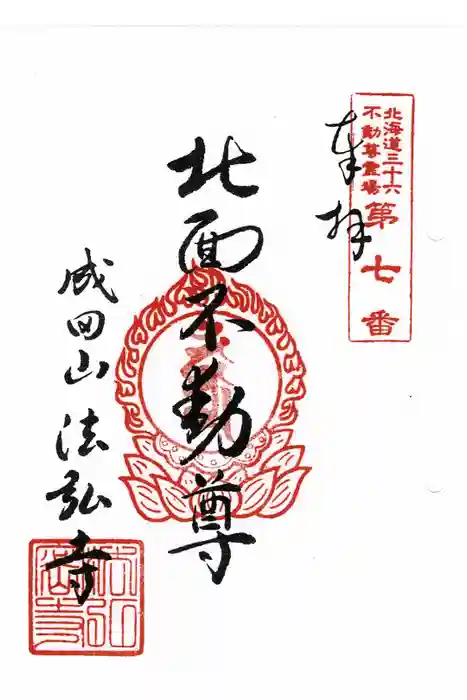 北海道三十六
不動尊霊場
第七番
奉拝
北面不動尊
成田山法弘寺
法弘寺